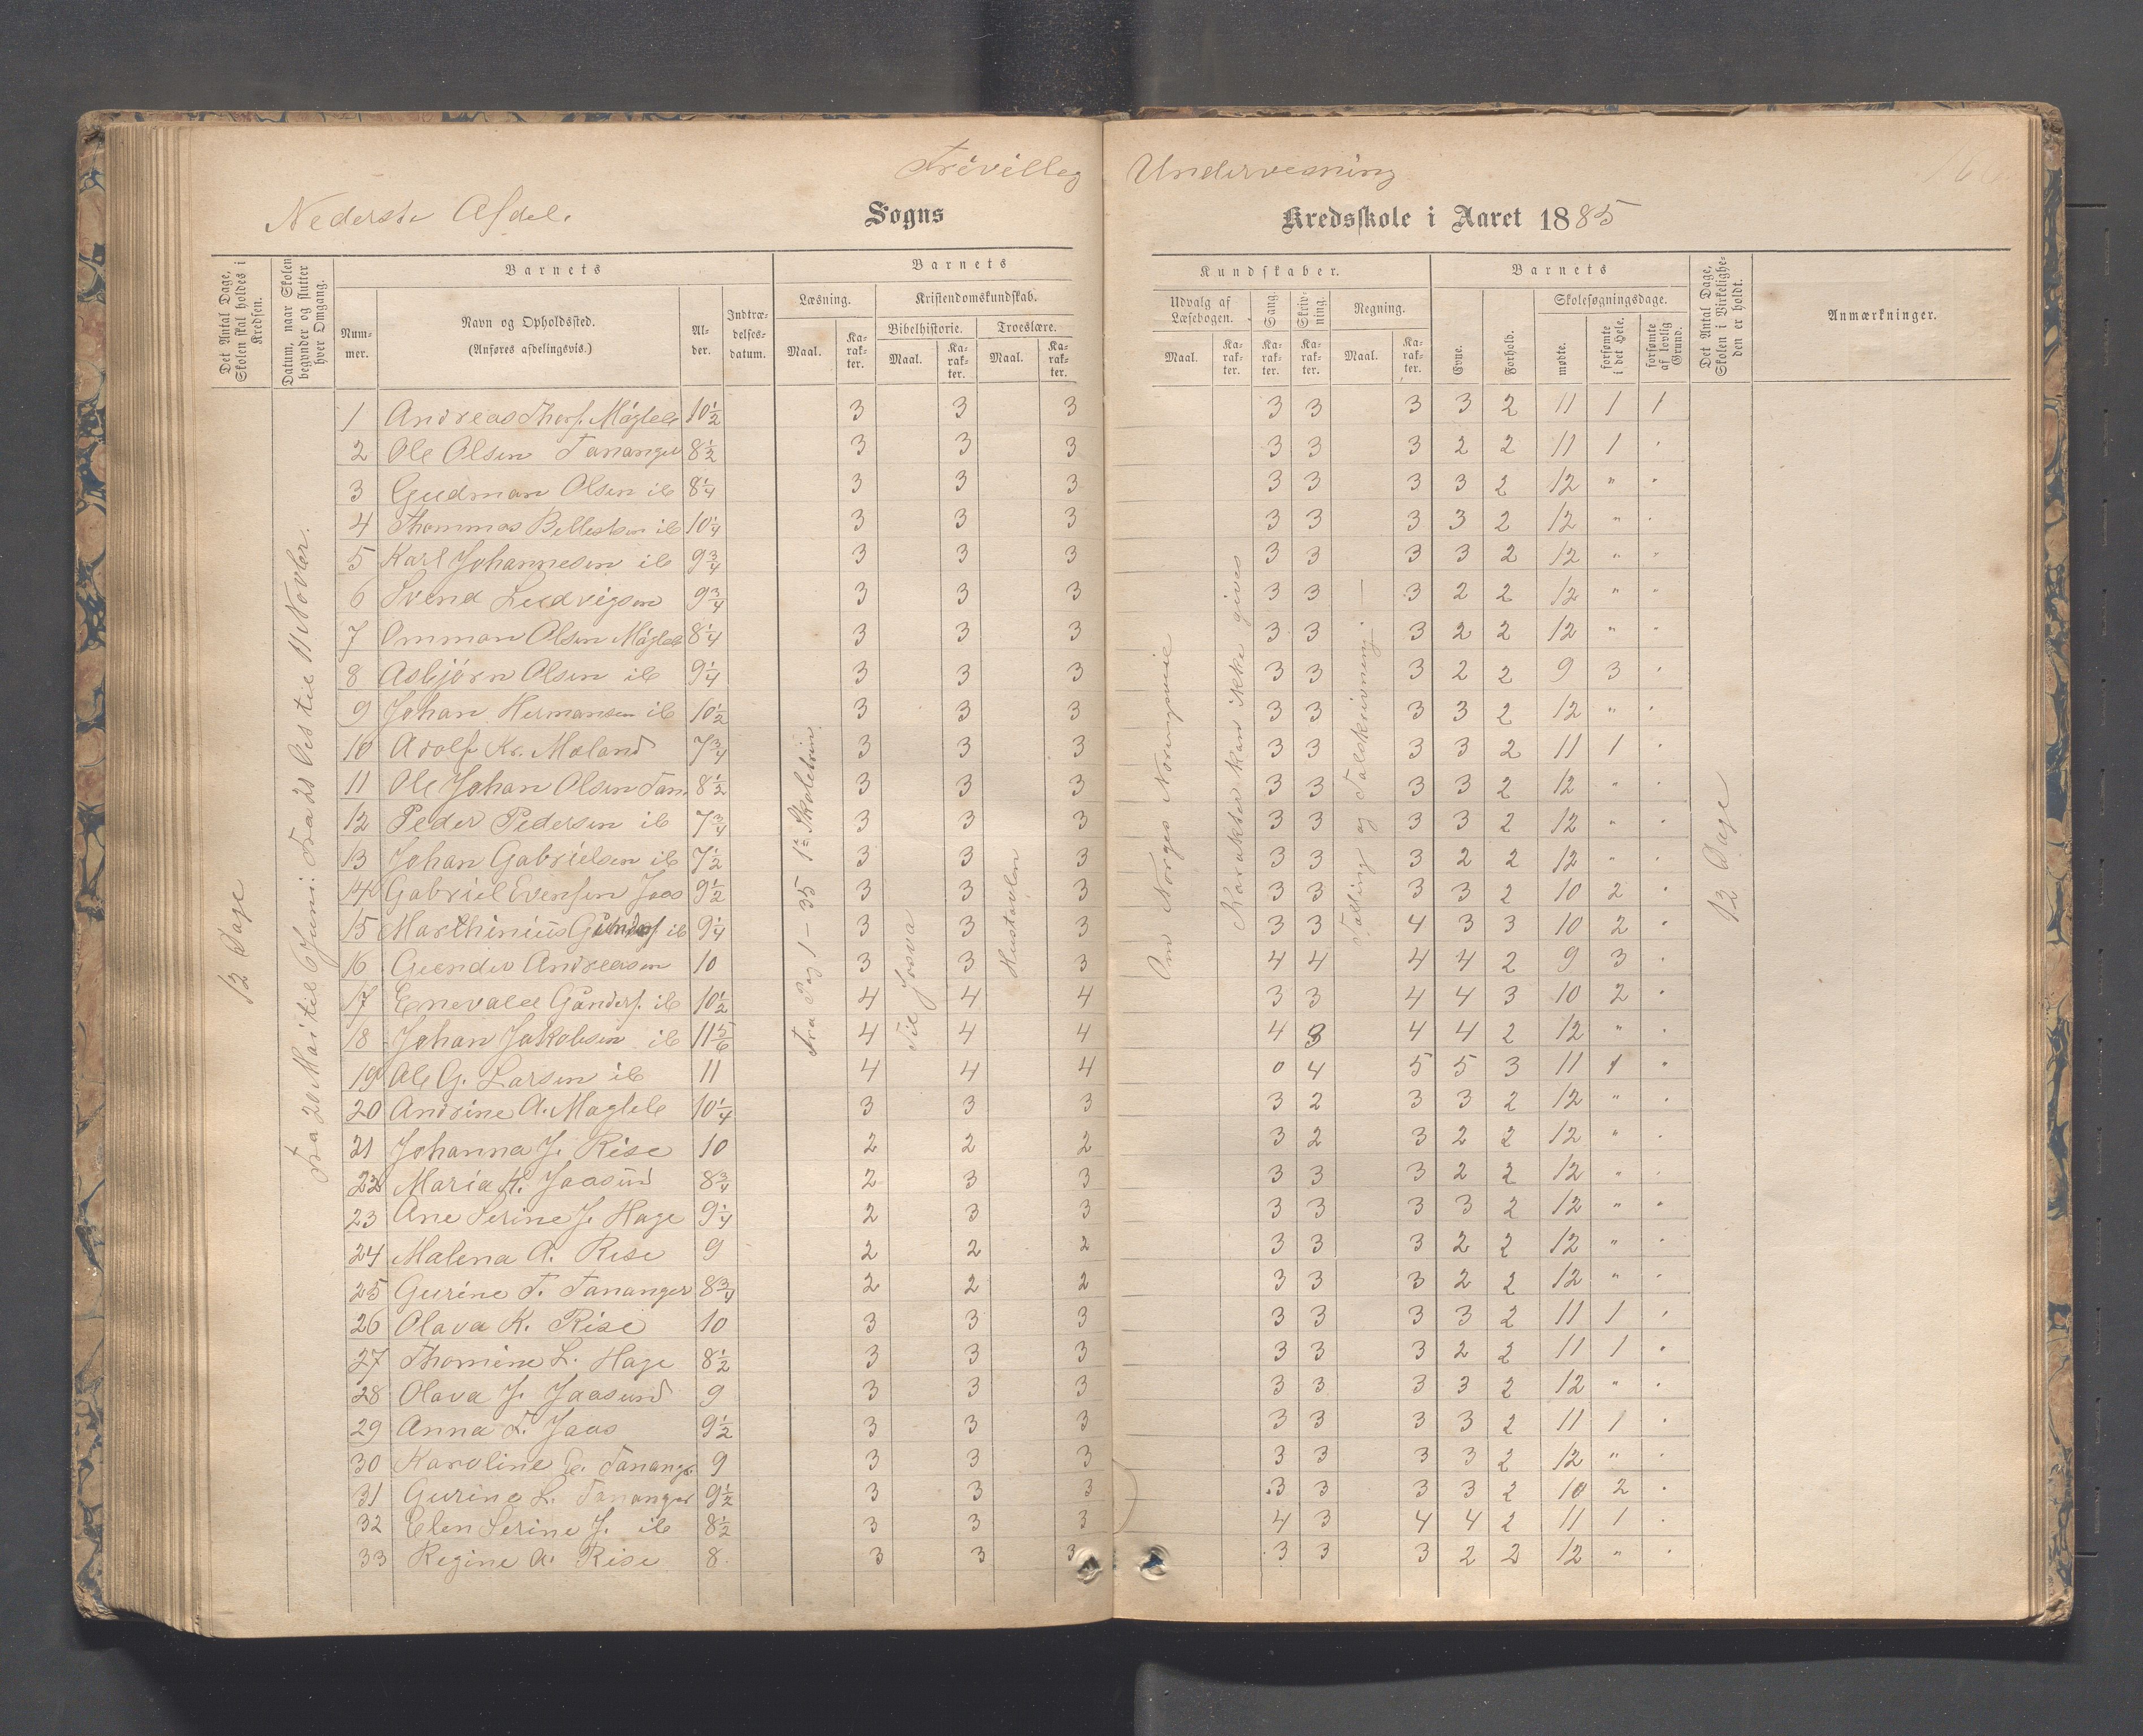 Frivillig Undervisning
Nederste Afdel. Sogns Kredsskole i Aaret 1885
Det Antal Dage, Skolen skal holdes i Kredsen.
Datum, naar Skolen begynder og slutter hver Omgang.
Barnets
Nummer.
Navn og Opholdssted.
(Anføres afdelingsvis.)
Alder.
Indtrædelsesdatum.
Barnets Kundskaber.
Læsning. Maal. Karakter.
Kristendomskundskab.
Bibelhistorie. Maal. Karakter.
Troeslære. Maal. Karakter.
Udvalg af Læsebogen. Maal. Karakter.
Sang. Karakter.
Skrivning. Karakter.
Regning. Maal. Karakter.
Barnets
Evne.
Forhold.
Skolesøgningsdage.
mødte.
forsømte i det Hele.
forsømte af lovlig Grund.
Det Antal Dage, Skolen i Virkeligheden er holdt.
Anmærkninger.
12 Dage
Fra 20 Mai til 6 Juni. Fra 28 Oct til 11 Novbr.
Fra Pag 1 - 35 1ste Skoletrin
Til Josva
Hustavlen
Om Norges Næringsveie
Karakter kan ikke gives
Tælling og Talskrivning. —
12 Dage
1 Andreas Thorf. Mågleb 10½ 3 3 3 3 3 3 3 2 11 1 1
2 Ole Olsen Tananger 8½ 3 3 3 3 3 3 2 2 11 1 .
3 Gudman Olsen ib 8¼ 3 3 3 3 3 3 3 2 12 " "
4 Thommas Bellestsen ib 10¼ 3 3 3 3 3 3 3 2 12 " .
5 Karl Johannesen ib 9¾ 3 3 3 3 3 3 3 2 12 " "
6 Svend Ludvigsen 9¾ 3 3 3 3 3 3 2 2 12 " "
7 Omman Olsen Mågleb 8¼ 3 3 3 3 3 3 2 2 12 " "
8 Asbjörn Olsen ib 9¼ 3 3 3 3 3 3 2 2 9 3 .
9 Johan Hermansen ib 10½ 3 3 3 3 3 3 3 2 12 " .
10 Adolf Kr. Meland 7¾ 3 3 3 3 3 3 3 2 11 1 .
11 Ole Johan Olsen Tan. 8½ 3 3 3 3 3 3 3 2 12 " .
12 Peder Pedersen ib 7¾ 3 3 3 3 3 3 3 2 12 " .
13 Johan Gabrielsen ib 7½ 3 3 3 3 3 3 2 2 12 " .
14 Gabriel Evensen Jaas 9½ 3 3 3 3 3 3 3 2 10 2 .
15 Marthinius Gunders. ib 9¼ 3 3 3 3 3 4 3 3 10 2 .
16 Gunder Andreasen 10 3 3 3 4 4 4 4 2 9 3 .
17 Enevald Gunders. ib 10½ 4 4 4 3 3 4 4 3 10 2 .
18 Johan Jakobsen ib 11 5/6 4 4 4 4 3 4 4 2 12 " .
19 Ole G. Larsen ib 11 4 4 4 0 4 5 5 3 11 1 .
20 Andrine A. Magleb 10¼ 3 3 3 3 2 3 3 2 12 " .
21 Johanna J. Rise 10 2 2 2 3 2 3 2 2 12 " .
22 Maria H. Jaasund 8¾ 2 3 3 3 3 3 2 2 12 " .
23 Ane Serine J. Hage 9¼ 2 3 3 3 3 3 3 2 12 " .
24 Malena A. Rise 9 2 2 2 3 3 3 2 2 12 " .
25 Gurine T. Tananger 8¾ 2 2 2 3 3 3 2 2 12 " .
26 Olava K. Rise 10 3 3 3 3 3 3 3 2 11 1 .
27 Thomine L. Hage 8½ 3 3 3 3 3 3 2 2 11 1 .
28 Olava J. Jaasund 9 3 3 3 3 3 3 3 2 12 " .
29 Anna T. Jaas 9½ 3 3 3 3 3 3 3 2 11 1 .
30 Karoline E. Tanang. 9 3 3 3 3 3 3 3 2 12 " .
31 Gurine L. Tananger 9½ 3 3 3 3 3 3 3 2 10 2 .
32 Elen Serine J. ib 8½ 3 3 3 4 3 4 4 2 11 1 .
33 Regine K. Rise 8 3 3 3 3 3 3 2 2 12 " .